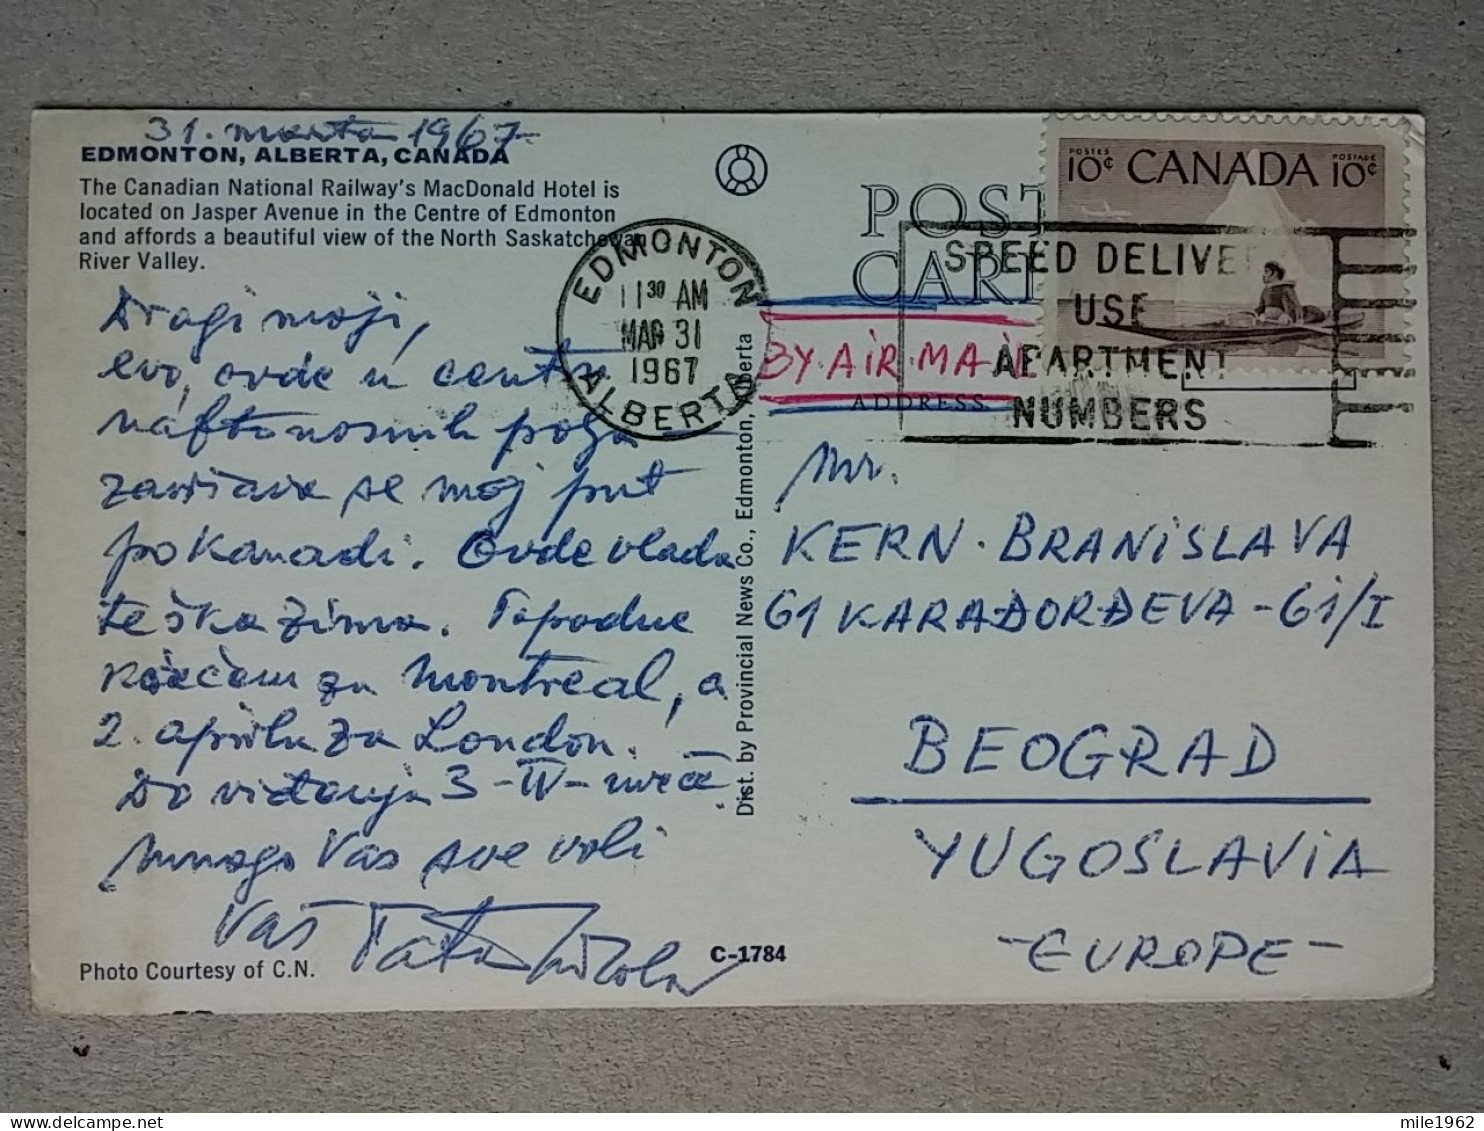 31. marta 1967
EDMONTON, ALBERTA, CANADA
The Canadian National Railway's MacDonald Hotel is
located on Jasper Avenue in the Centre of Edmonton
and affords a beautiful view of the North Saskatchewan
River Valley.
Dragi moji,
evo, ovde u centru
naftonosnih polja
završava se moj put
po Kanadi. Ovde vlada
teška zima. Popodne
krećem za Montreal, a
2. aprila za London.
Do viđenja 3-IV-uveče,
Mnogo Vas sve voli
Vaš Tata Nikola
Photo Courtesy of C.N.
C-1784
Dist. by Provincial News Co., Edmonton, Alberta
POST
CARD
ADDRESS
BY AIR MAIL
EDMONTON
11 30 AM
MAR 31
1967
ALBERTA
SPEED DELIVERY
USE
APARTMENT
NUMBERS
POSTES
POSTAGE
10¢ CANADA 10¢
Mr.
KERN BRANISLAVA
61 KARAĐORĐEVA - 61/I
BEOGRAD
YUGOSLAVIA
- EUROPE -
mile1962